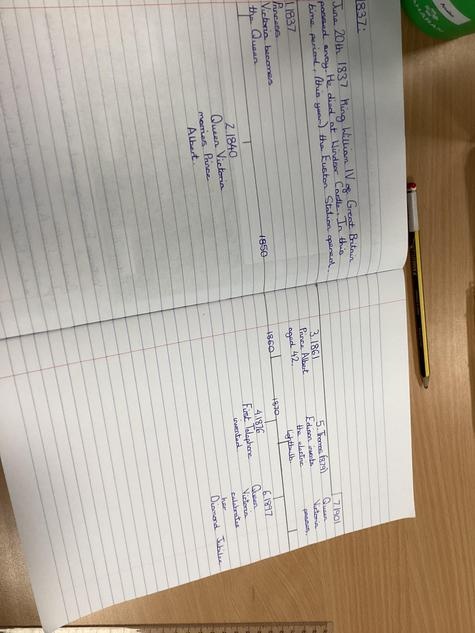 1837:
June 20th 1837 King William IV of Great Britain
passed away. He died at Windsor Castle. In this
time period, (this year) the Euston Station opened.
1.1837
Princess
Victoria becomes
the Queen
2.1840
Queen Victoria
marries Prince
Albert.
1850
3.1861
Prince Albert
aged 42.
1860
1870
4.1876
First Telephone
invented
5. Thomas (1879)
Edison invents
the electric
lightbulb.
6.1897
Queen
Victoria
her
celebrates
Diamond Jubilee
7.1901
Queen
Victoria
passes.